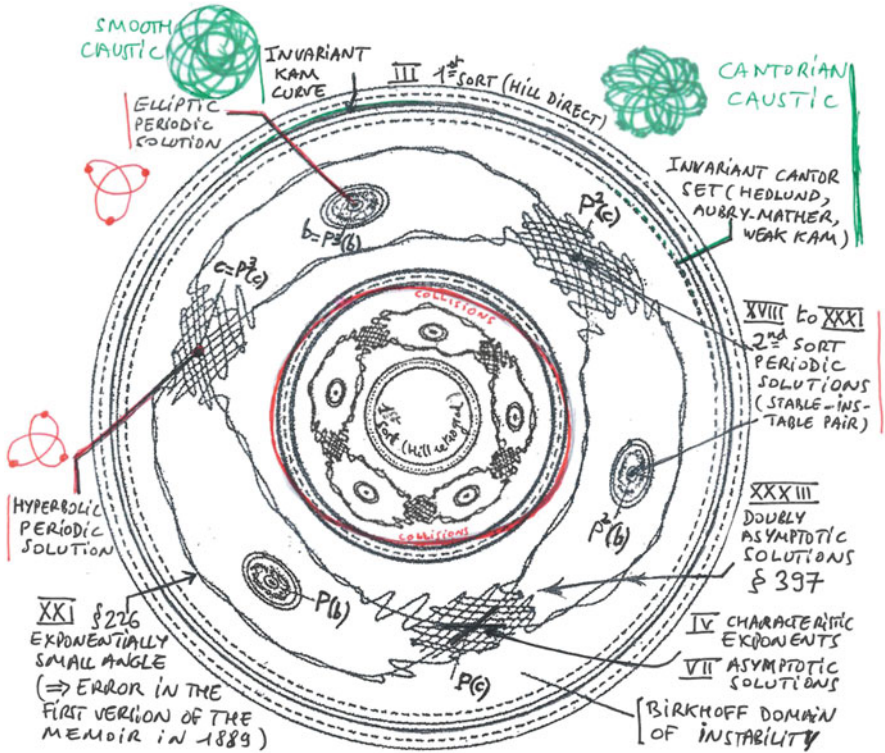 SMOOTH
CAUSTIC
INVARIANT
KAM
CURVE
III 1st SORT (HILL DIRECT)
CANTORIAN
CAUSTIC
ELLIPTIC
PERIODIC
SOLUTION
INVARIANT CANTOR
SET (HEDLUND,
AUBRY-MATHER,
WEAK KAM)
b=P³(b)
P²(c)
c=P³(c)
COLLISIONS
1st sort (Hill retrograd.)
COLLISIONS
XVIII to XXXI
2nd SORT
PERIODIC
SOLUTIONS
(STABLE-INS-
TABLE PAIR)
HYPERBOLIC
PERIODIC
SOLUTION
P²(b)
XXXIII
DOUBLY
ASYMPTOTIC
SOLUTIONS
§ 397
P(b)
P(c)
XXI § 226
EXPONENTIALLY
SMALL ANGLE
(⇒ ERROR IN THE
FIRST VERSION OF THE
MEMOIR IN 1889)
IV CHARACTERISTIC
EXPONENTS
VII ASYMPTOTIC
SOLUTIONS
BIRKHOFF DOMAIN
OF INSTABILITY